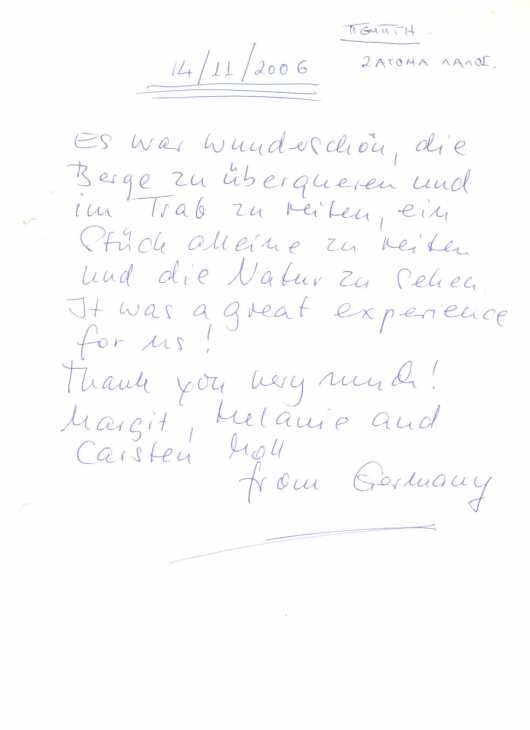 ΠΕΜΠΤΗ
14/11/2006
2 ΑΤΟΜΑ
Es war wunderschön, die
Berge zu überqueren und
im Trab zu reiten, ein
Stück alleine zu reiten
und die Natur zu sehen.
It was a great experience
for us!
Thank you very much!
Margit, Melanie and
Carsten Moll
from Germany